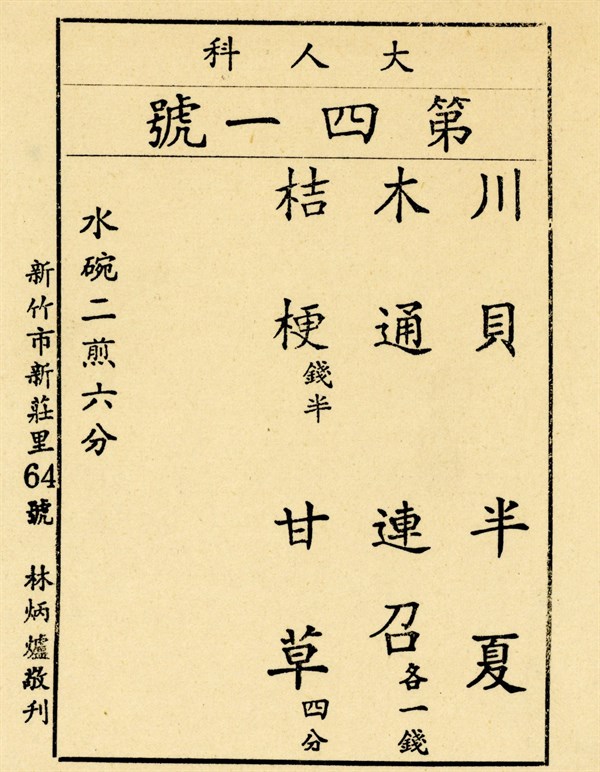 大人科
第四一號
川貝 半夏
木通 連召各一錢
桔梗錢半 甘草四分
水碗二煎六分
新竹市新莊里64號 林炳爐敬刊